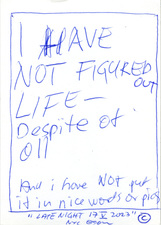 I HAVE
NOT FIGURED OUT
LIFE —
Despite of
all
And i have NOT put
it in nice words or pics
"LATE NIGHT 17 V 2023"
NYC